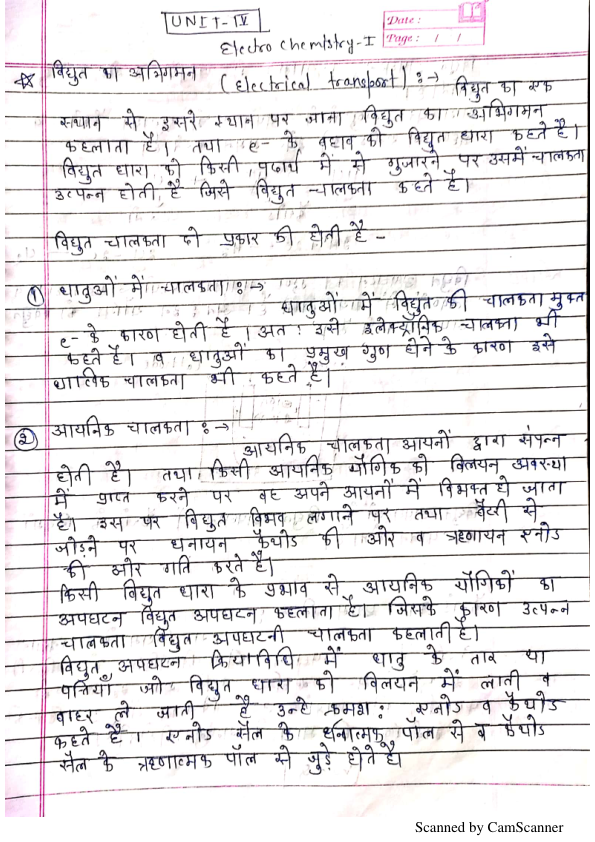 UNIT-IV
Date :
Page : / /
Electro Chemistry-I
विद्युत का अभिगमन (Electrical transport) :→ विद्युत का एक
स्थान से दूसरे स्थान पर जाना विद्युत का अभिगमन
कहलाता है। तथा e- के बहाव को विद्युत धारा कहते है।
विद्युत धारा को किसी पदार्थ में से गुजारने पर उसमें चालकता
उत्पन्न होती है जिसे विद्युत चालकता कहते है।
विद्युत चालकता दो प्रकार की होती है -
① धातुओं में चालकता :→
धातुओं में विद्युत की चालकता मुक्त
e- के कारण होती है। अत: इसे इलेक्ट्रॉनिक चालकता भी
कहते है। व धातुओं का प्रमुख गुण होने के कारण इसे
धात्विक चालकता भी कहते है।
② आयनिक चालकता :→
आयनिक चालकता आयनों द्वारा संपन्न
होती है। तथा किसी आयनिक यौगिक को विलयन अवस्था
में प्राप्त करने पर वह अपने आयनों में विभक्त हो जाता
है। इस पर विद्युत विभव लगाने पर तथा बैटरी से
जोड़ने पर धनायन कैथोड की ओर व ऋणायन एनोड
की ओर गति करते है।
किसी विद्युत धारा के प्रभाव से आयनिक यौगिकों का
अपघटन विद्युत अपघटन कहलाता है। जिसके कारण उत्पन्न
चालकता विद्युत अपघटनी चालकता कहलाती है।
विद्युत अपघटन क्रियाविधि में धातु के तार या
पत्तियाँ जो विद्युत धारा को विलयन में लाती व
बाहर ले जाती है उन्हे क्रमश: एनोड व कैथोड
कहते है। एनोड सैल के धनात्मक पॉल से व कैथोड
सैल के ऋणात्मक पॉल से जुड़े होते है।
Scanned by CamScanner